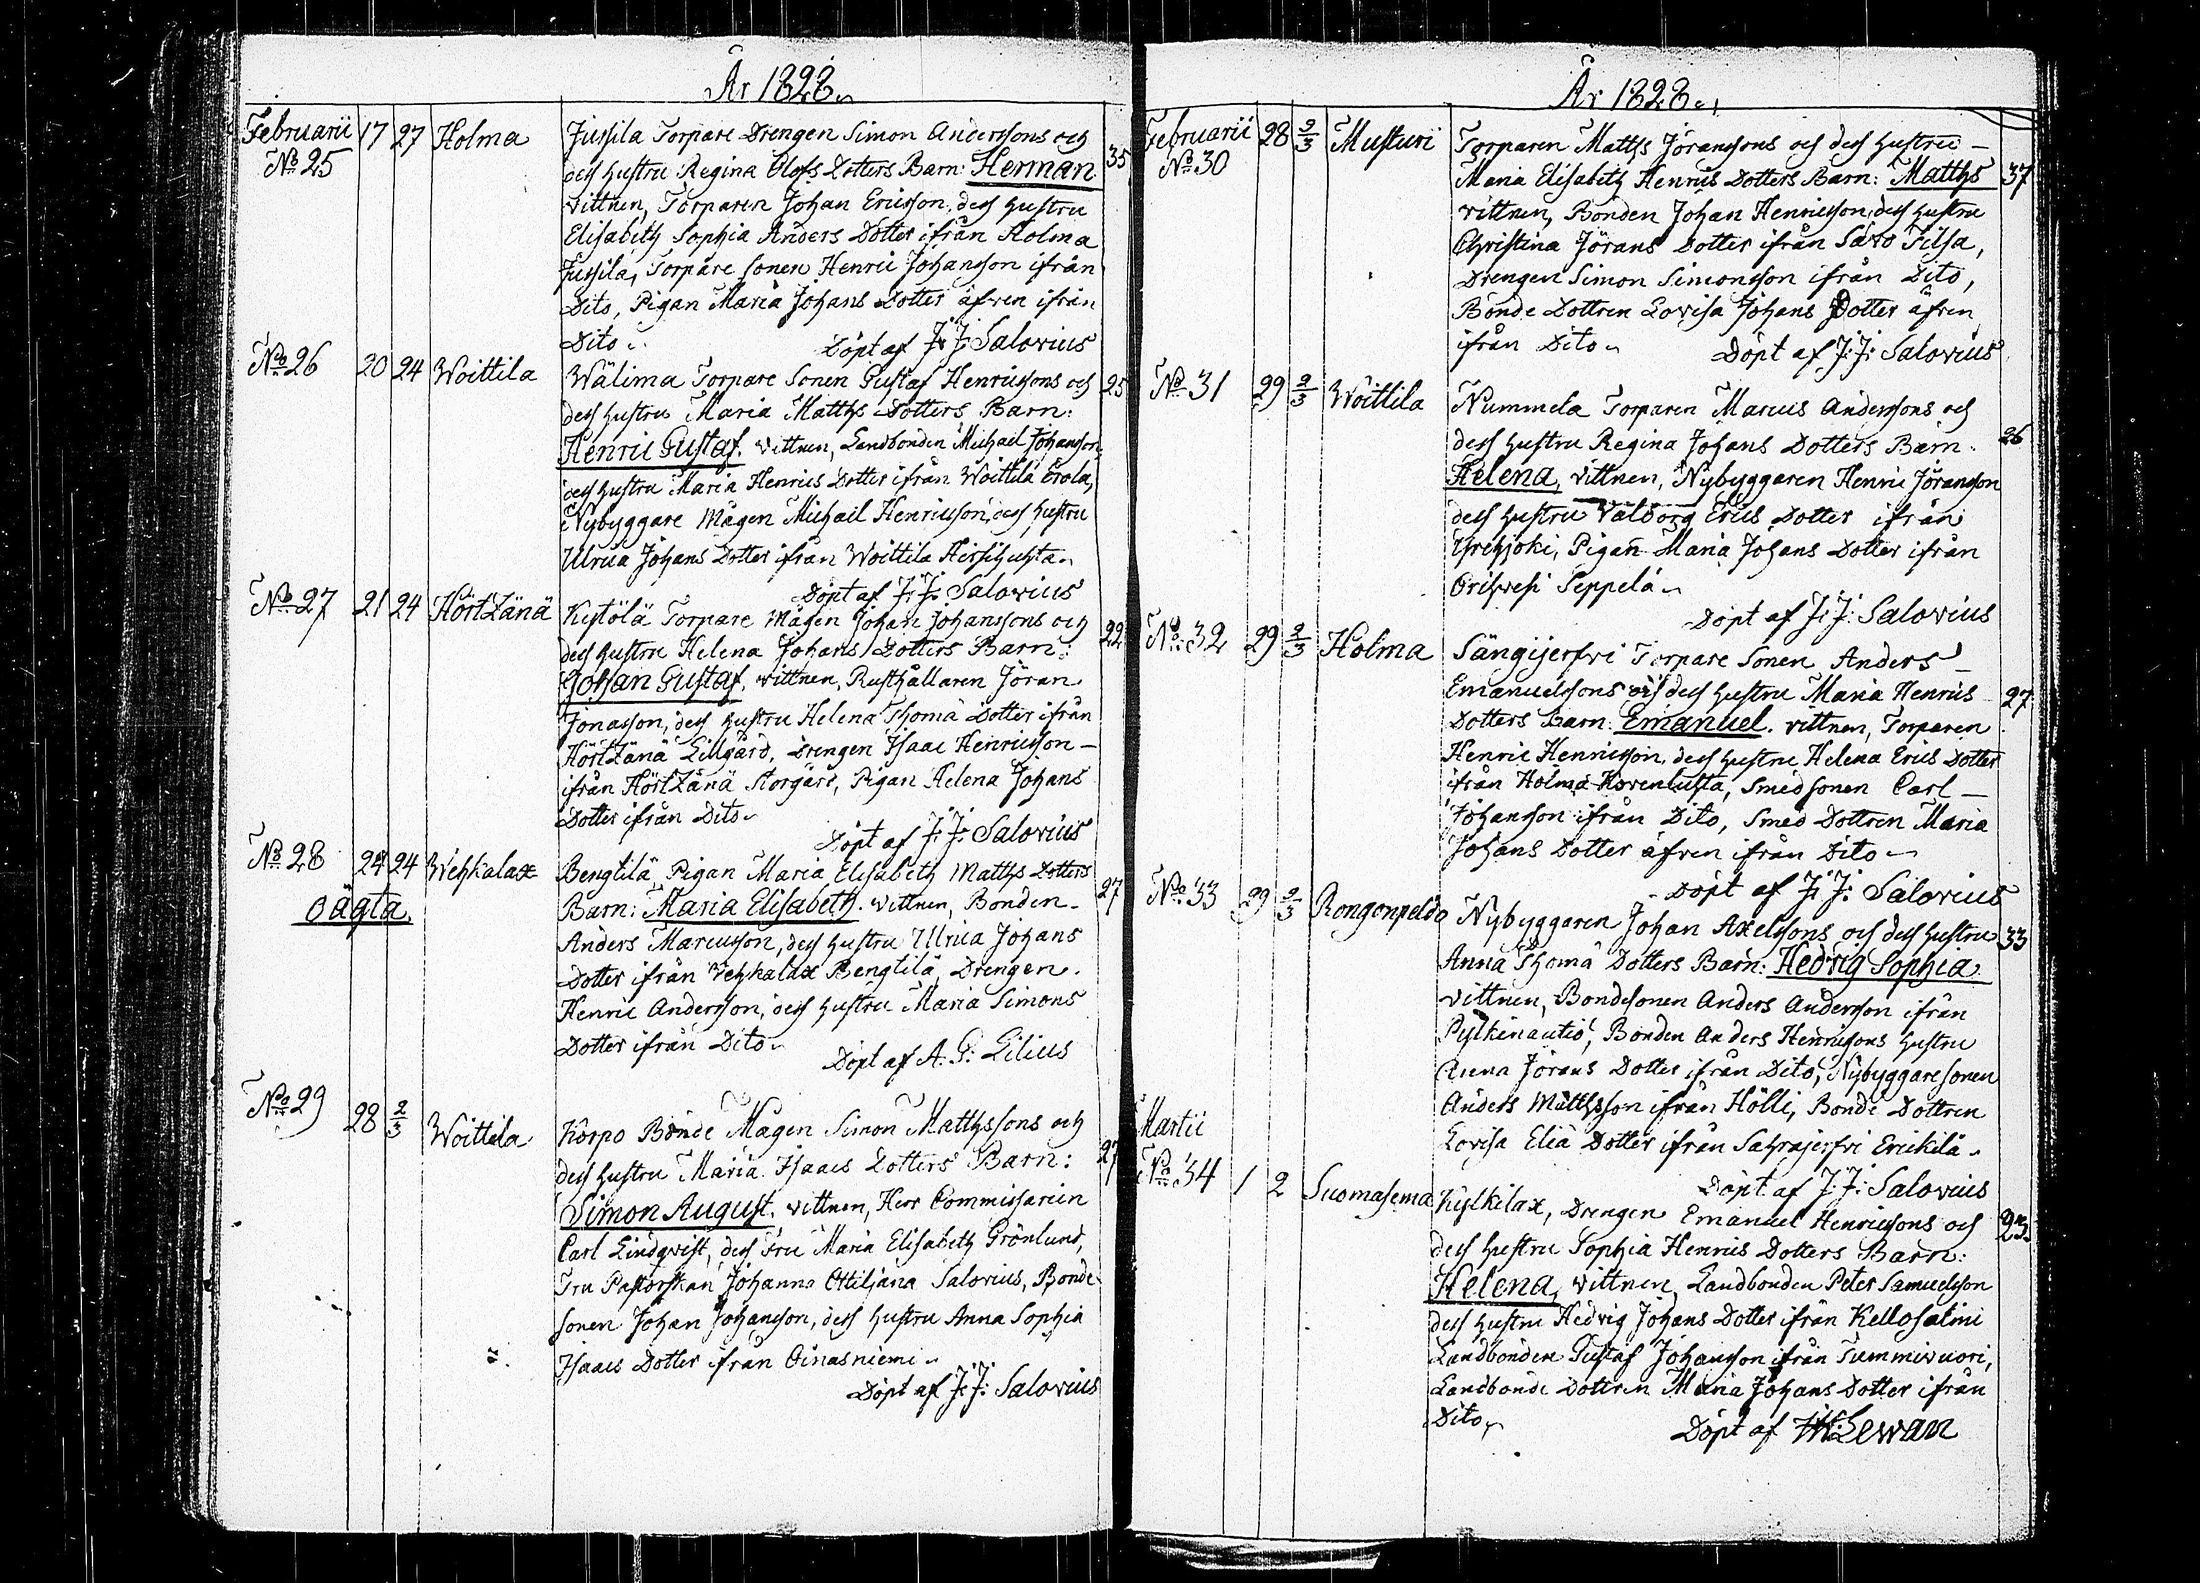 År 1828.
Februarii 17 27 Holma Jussila Torpare Drengen Simon Anderssons och
No 25 dess hustru Regina Olofs Dotters Barn: Herman 35
vittnen, Torparen Johan Ericsson, dess hustru
Elisabeth Sophia Anders Dotter ifrån Holma
Jussila, Torpare sonen Henric Johansson ifrån
Dito, Pigan Maria Johans Dotter äfven ifrån
Dito. Döpt af J: J: Salovius
No 26 20 24 Woittila Wälima Torpare Sonen Gustaf Henricssons och 25
dess hustru Maria Matths Dotters Barn:
Henric Gustaf. vittnen, Landbonden Michael Johansson,
dess hustru Maria Henrics Dotter ifrån Woittila Erola,
Nybyggare Mågen Michail Henricsson, dess hustru
Ulrica Johans Dotter ifrån Woittila Hirsihuhta.
Döpt af J: J: Salovius
No 27 21 24 Hörtzänä Kystölä Torpare Mågen Johan Johanssons och 22
dess hustru Helena Johans Dotters Barn:
Johan Gustaf. vittnen, Rusthållaren Jöran
Jonasson, dess hustru Helena Thomä Dotter ifrån
Hörtzänä Lillgård, Drengen Isaac Henricsson –
ifrån Hörtzänä Storgård, Pigan Helena Johans
Dotter ifrån Dito.
Döpt af J: J: Salovius
No 28 24 24 Wehkalax Bengtilä Pigan Maria Elisabeth Matths Dotters
oägta. Barn: Maria Elisabeth. vittnen, Bonden 27
Anders Marcusson, dess hustru Ulrica Johans
Dotter ifrån Vehkalax Bengtilä, Drengen
Henric Andersson, dess hustru Maria Simons
Dotter ifrån Dito. Döpt af A. G: Lilius
No 29 28 2/3 Woittila Korpo Bonde Mågen Simon Matthssons och
dess hustru Maria Isaacs Dotters Barn: 27
Simon August. vittnen, Herr Commissarien
Carl Lindqvist, dess Fru Maria Elisabeth Grönlund,
Fru Pastorskan Johanna Ottiljana Salovius, Bonde
sonen Johan Johansson, dess hustru Anna Sophia
Isaacs Dotter ifrån Oinasniemi.
Döpt af J: J: Salovius
År 1828.
Februarii 28 2/3 Musturi Torparen Matths Jöranssons och dess hustru –
No 30 Maria Elisabeth Henrics Dotters Barn: Matths 37
vittnen, Bonden Johan Henricsson, dess hustru
Christina Jörans Dotter ifrån Säro Filsa,
Drengen Simon Simonsson ifrån Dito,
Bonde Dottren Lovisa Johans Dotter äfven
ifrån Dito. Döpt af J: J: Salovius
No 31 29 2/3 Woittila Nummela Torparen Marcus Anderssons och
dess hustru Regina Johans Dotters Barn. 26
Helena, vittnen, Nybyggaren Henric Jöransson
dess hustru Valborg Erics Dotter ifrån
Yrehjoki, Pigan Maria Johans Dotter ifrån
Orihvesi Seppelä.
Döpt af J: J: Salovius
No 32 29 2/3 Holma Sängijerfvi Torpare Sonen Anders –
Emanuelssons och dess hustru Maria Henrics 27
Dotters Barn: Emanuel. vittnen, Torparen
Henric Henricsson, dess hustru Helena Erics Dotter
ifrån Holma Hovenhuhta, Smedsonen Carl –
Johansson ifrån Dito, Smed Dottren Maria
Johans Dotter äfven ifrån Dito
Döpt af J: J: Salovius
No 33 29 2/3 Rongonpeldo Nybyggaren Johan Axelssons och dess hustru 33
Anna Thomä Dotters Barn: Hedvig Sophia.
vittnen, Bondesonen Anders Andersson ifrån
Pylkinautio, Bonden Anders Henricsons hustru
Anna Jörans Dotter ifrån Dito, Nybyggaresonen
Anders Matthsson ifrån Hölli, Bonde Dottren
Lovisa Eliä Dotter ifrån Sahrajerfvi Erickilä.
Döpt af J: J: Salovius
Martii
No 34 1 2 Suomasema Kylkilax, Drengen Emanuel Henricssons och 23
dess hustru Sophia Henrics Dotters Barn:
Helena, vittnen, Landbonden Peter Samuelsson
dess hustru Hedvig Johans Dotter ifrån Kellosalmi
Landbonden Gustaf Johansson ifrån Tummivuori,
Landbonde Dottren Maria Johans Dotter ifrån
Dito.
Döpt af Lewan